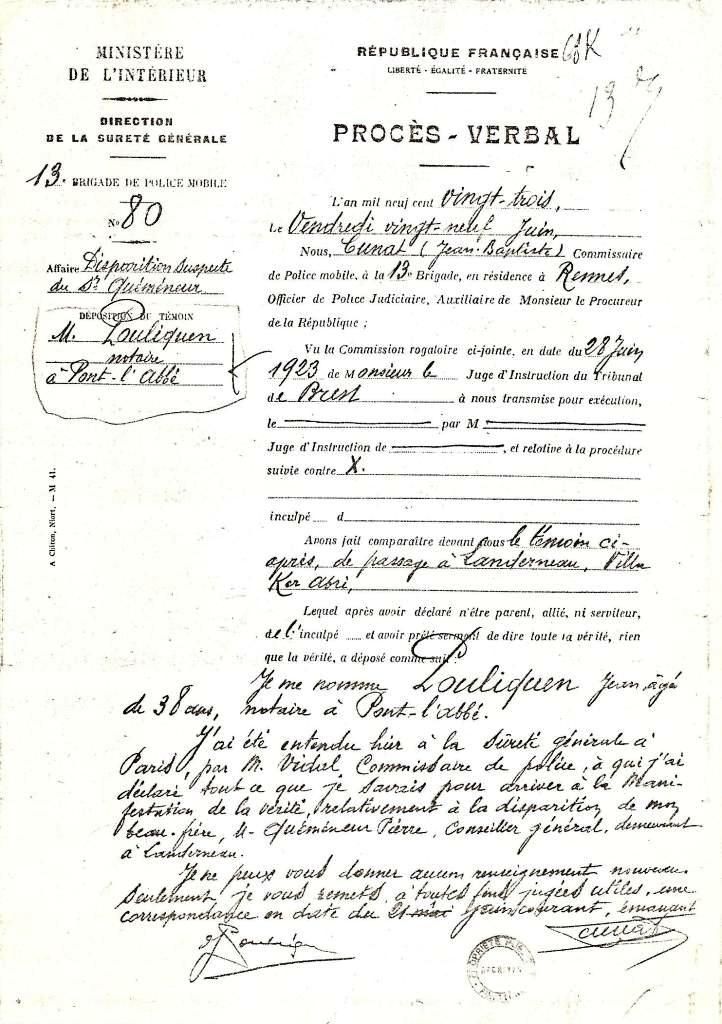 MINISTÈRE
DE L'INTÉRIEUR
DIRECTION
DE LA SURETÉ GÉNÉRALE
13e BRIGADE DE POLICE MOBILE
No 80
Affaire Disparition suspecte
du Sr Quéméneur
DÉPOSITION DU TÉMOIN
M. Pouliquen
notaire
à Pont-l'Abbé
A Clouzot, Niort. — M 41.
RÉPUBLIQUE FRANÇAISE
LIBERTÉ - ÉGALITÉ - FRATERNITÉ
PROCÈS - VERBAL
L'an mil neuf cent vingt-trois,
Le Vendredi vingt-neuf Juin,
Nous, Cunat (Jean-Baptiste) Commissaire
de Police mobile, à la 13e Brigade, en résidence à Rennes,
Officier de Police Judiciaire, Auxiliaire de Monsieur le Procureur
de la République ;
Vu la Commission rogatoire ci-jointe, en date du 28 Juin
1923 de Monsieur le Juge d'Instruction du Tribunal
de Brest à nous transmise pour exécution,
le par M
Juge d'Instruction de , et relative à la procédure
suivie contre X.
inculpé d
Avons fait comparaître devant nous le témoin ci-
après, de passage à Landerneau, Villa
Ker Abri,
Lequel après avoir déclaré n'être parent, allié, ni serviteur,
de l'inculpé et avoir prêté serment de dire toute la vérité, rien
que la vérité, a déposé comme suit :
Je me nomme Pouliquen Jean, âgé
de 38 ans, notaire à Pont-l'Abbé.
J'ai été entendu hier à la Sûreté générale à
Paris, par M. Vidal, Commissaire de police, à qui j'ai
déclaré tout ce que je savais pour arriver à la mani-
festation de la vérité, relativement à la disparition de mon
beau-frère, M. Quéméneur Pierre, Conseiller général, demeurant
à Landerneau.
Je ne peux vous donner aucun renseignement nouveau.
Seulement, je vous remets, à toutes fins jugées utiles, une
correspondance en date du 21 mai Juin courant, émanant